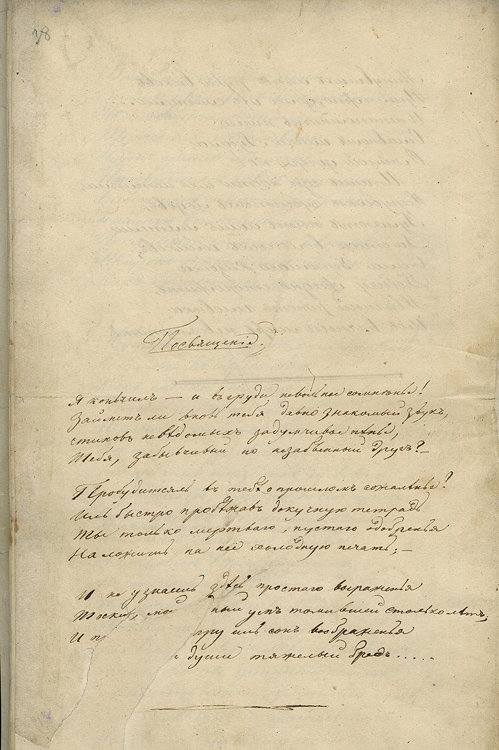 38
Посвященіе.
Я кончилъ — и въ груди невольное сомнѣнье!
Займетъ ли вновь тебя давно знакомый звукъ,
стиховъ невѣдомыхъ задумчивое пѣнье,
Тебя, забывчивый но незабвенный другъ? —
Пробудится ль въ тебѣ о прошломъ сожалѣнье?
Иль быстро пробѣжавъ докучную тетрадь
Ты только мертваго, пустаго одобренья
Наложишь на нее холодную печать; —
И не узнаешь здѣсь простаго выраженья
Тоски, мой умъ томившей столько лѣтъ,
И иль сонъ воображенья
души тяжелый бредъ.....